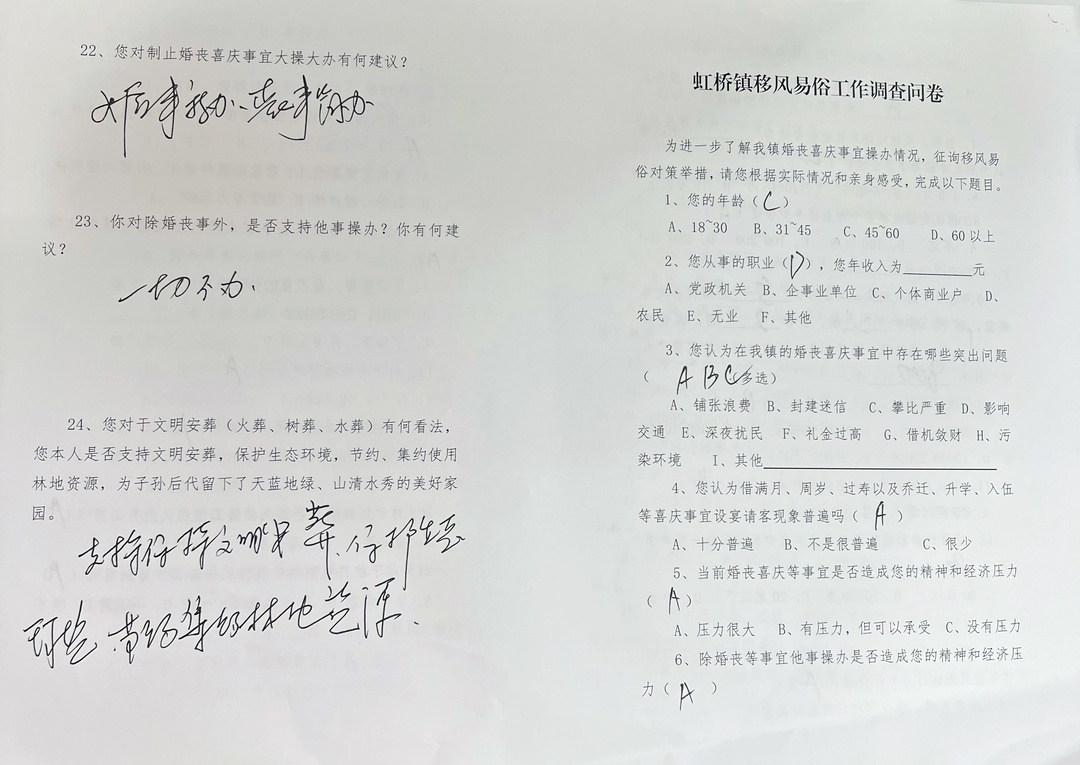 22、您对制止婚丧喜庆事宜大操大办有何建议？
婚事新办、丧事简办
23、你对除婚丧事外，是否支持他事操办？你有何建
议？
一切不办.
24、您对于文明安葬（火葬、树葬、水葬）有何看法，
您本人是否支持文明安葬，保护生态环境，节约、集约使用
林地资源，为子孙后代留下了天蓝地绿、山清水秀的美好家
园。
支持 文明 葬、保护生态
环境 节约集约林地资源.
虹桥镇移风易俗工作调查问卷
为进一步了解我镇婚丧喜庆事宜操办情况，征询移风易
俗对策举措，请您根据实际情况和亲身感受，完成以下题目。
1、您的年龄（C）
A、18~30 B、31~45 C、45~60 D、60以上
2、您从事的职业（D），您年收入为________元
A、党政机关 B、企事业单位 C、个体商业户 D、
农民 E、无业 F、其他
3、您认为在我镇的婚丧喜庆事宜中存在哪些突出问题
（ ABC 多选）
A、铺张浪费 B、封建迷信 C、攀比严重 D、影响
交通 E、深夜扰民 F、礼金过高 G、借机敛财 H、污
染环境 I、其他________
4、您认为借满月、周岁、过寿以及乔迁、升学、入伍
等喜庆事宜设宴请客现象普遍吗（ A ）
A、十分普遍 B、不是很普遍 C、很少
5、当前婚丧喜庆等事宜是否造成您的精神和经济压力
（ A ）
A、压力很大 B、有压力，但可以承受 C、没有压力
6、除婚丧等事宜他事操办是否造成您的精神和经济压
力（ A ）